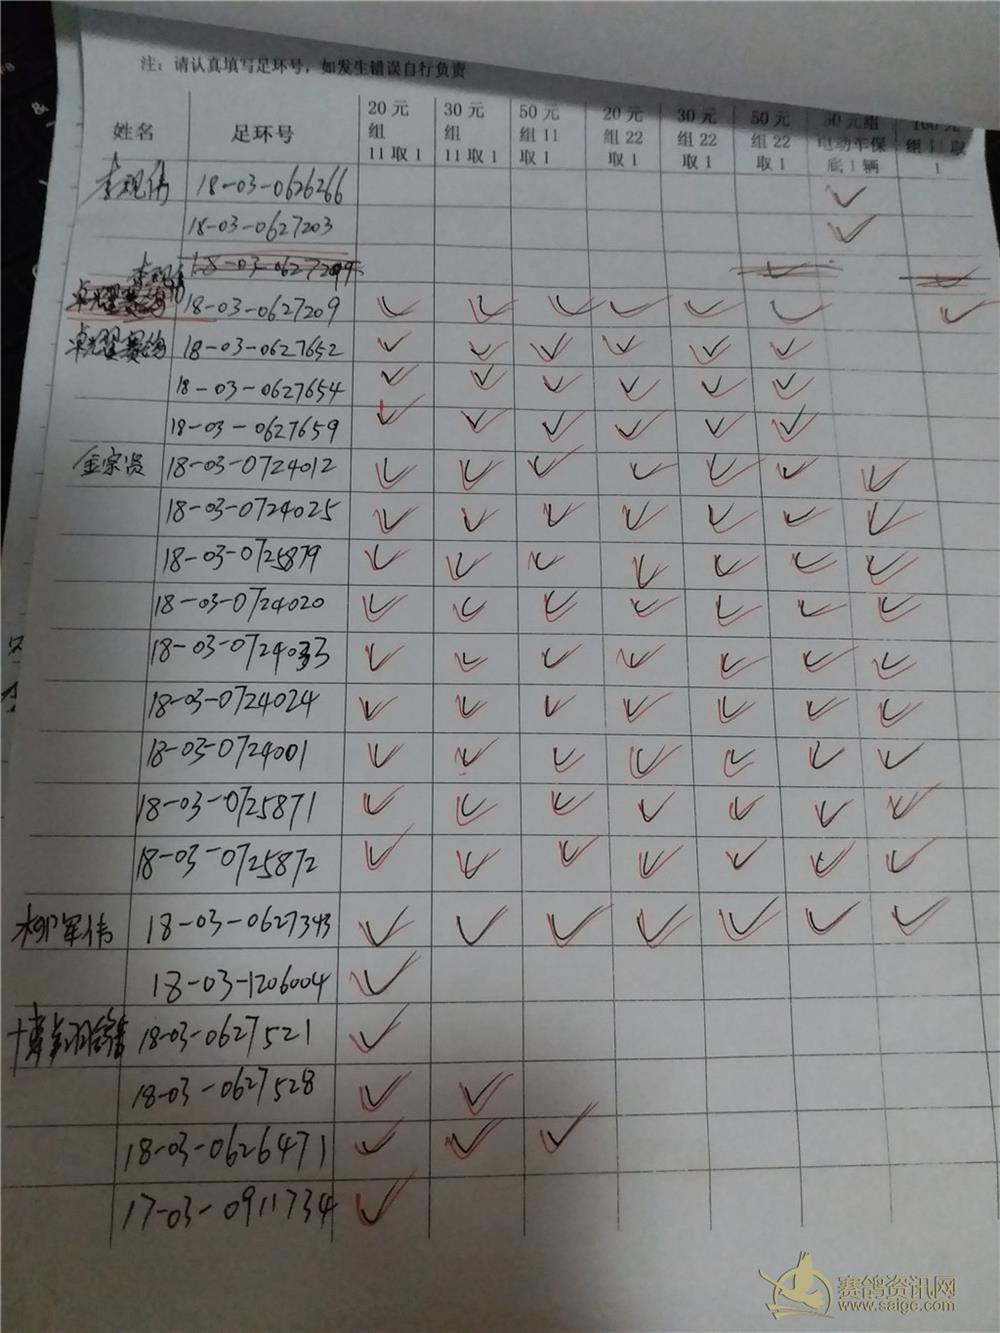 注：请认真填写足环号，如发生错误自行负责
姓名 足环号 20元组11取1 30元组11取1 50元组11取1 20元组22取1 30元组22取1 50元组22取1 50元组电动车保底1辆 100元组11取1
李观伟 18-03-0626266 ✓
18-03-0627203 ✓
18-03-0627299 ✓ ✓
18-03-0627209 ✓ ✓ ✓ ✓ ✓ ✓ ✓
卓龙翼赛鸽 18-03-0627652 ✓ ✓ ✓ ✓ ✓ ✓
18-03-0627654 ✓ ✓ ✓ ✓ ✓ ✓
18-03-0627659 ✓ ✓ ✓ ✓ ✓ ✓
金宗贤 18-03-0724012 ✓ ✓ ✓ ✓ ✓ ✓ ✓
18-03-0724025 ✓ ✓ ✓ ✓ ✓ ✓ ✓
18-03-0725879 ✓ ✓ ✓ ✓ ✓ ✓ ✓
18-03-0724020 ✓ ✓ ✓ ✓ ✓ ✓ ✓
18-03-0724033 ✓ ✓ ✓ ✓ ✓ ✓ ✓
18-03-0724024 ✓ ✓ ✓ ✓ ✓ ✓ ✓
18-03-0724001 ✓ ✓ ✓ ✓ ✓ ✓ ✓
18-03-0725871 ✓ ✓ ✓ ✓ ✓ ✓ ✓
18-03-0725872 ✓ ✓ ✓ ✓ ✓ ✓ ✓
柳军伟 18-03-0627343 ✓ ✓ ✓ ✓ ✓ ✓ ✓
18-03-1206004 ✓
18-03-0627521 ✓
18-03-0627528 ✓ ✓
18-03-0626471 ✓ ✓ ✓
17-03-0911734 ✓
赛鸽资讯网
www.saigc.com